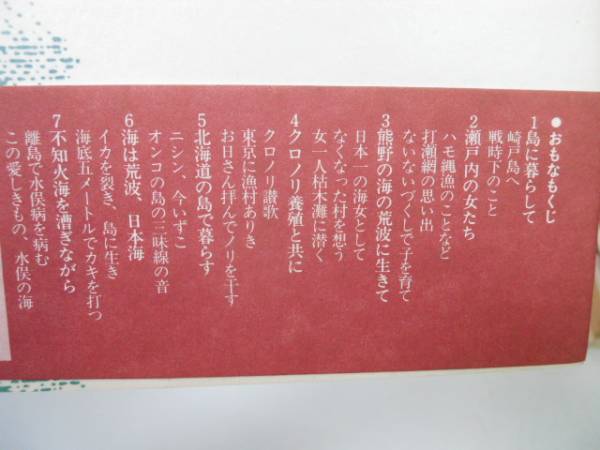 ●おもなもくじ
1島に暮らして
崎戸島へ
戦時下のこと
2瀬戸内の女たち
ハモ縄漁のことなど
打瀬網の思い出
ないないづくしで子を育て
3熊野の海の荒波に生きて
日本一の海女として
なくなった村を想う
女一人枯木灘に潜く
4クロノリ養殖と共に
クロノリ讃歌
東京に漁村ありき
お日さん拝んでノリを干す
5北海道の島で暮らす
ニシン、今いずこ
オンコの島の三味線の音
6海は荒波、日本海
イカを裂き、島に生き
海底五メートルでカキを打つ
7不知火海を漕ぎながら
離島で水俣病を病む
この愛しきもの、水俣の海